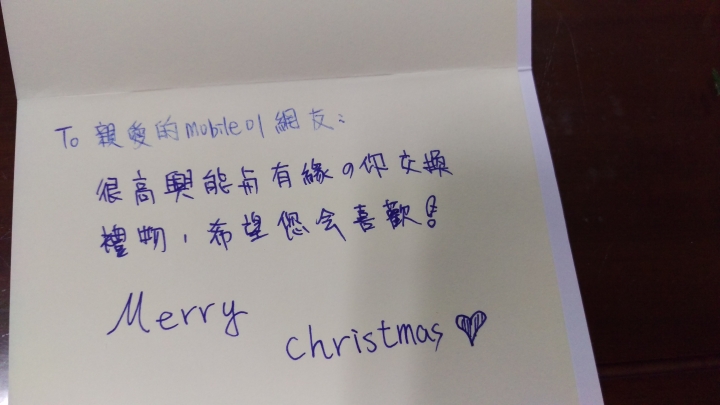 To 親愛的mobile01網友:
很高興能与有緣の你交換
禮物,希望您会喜歡!
Merry
christmas